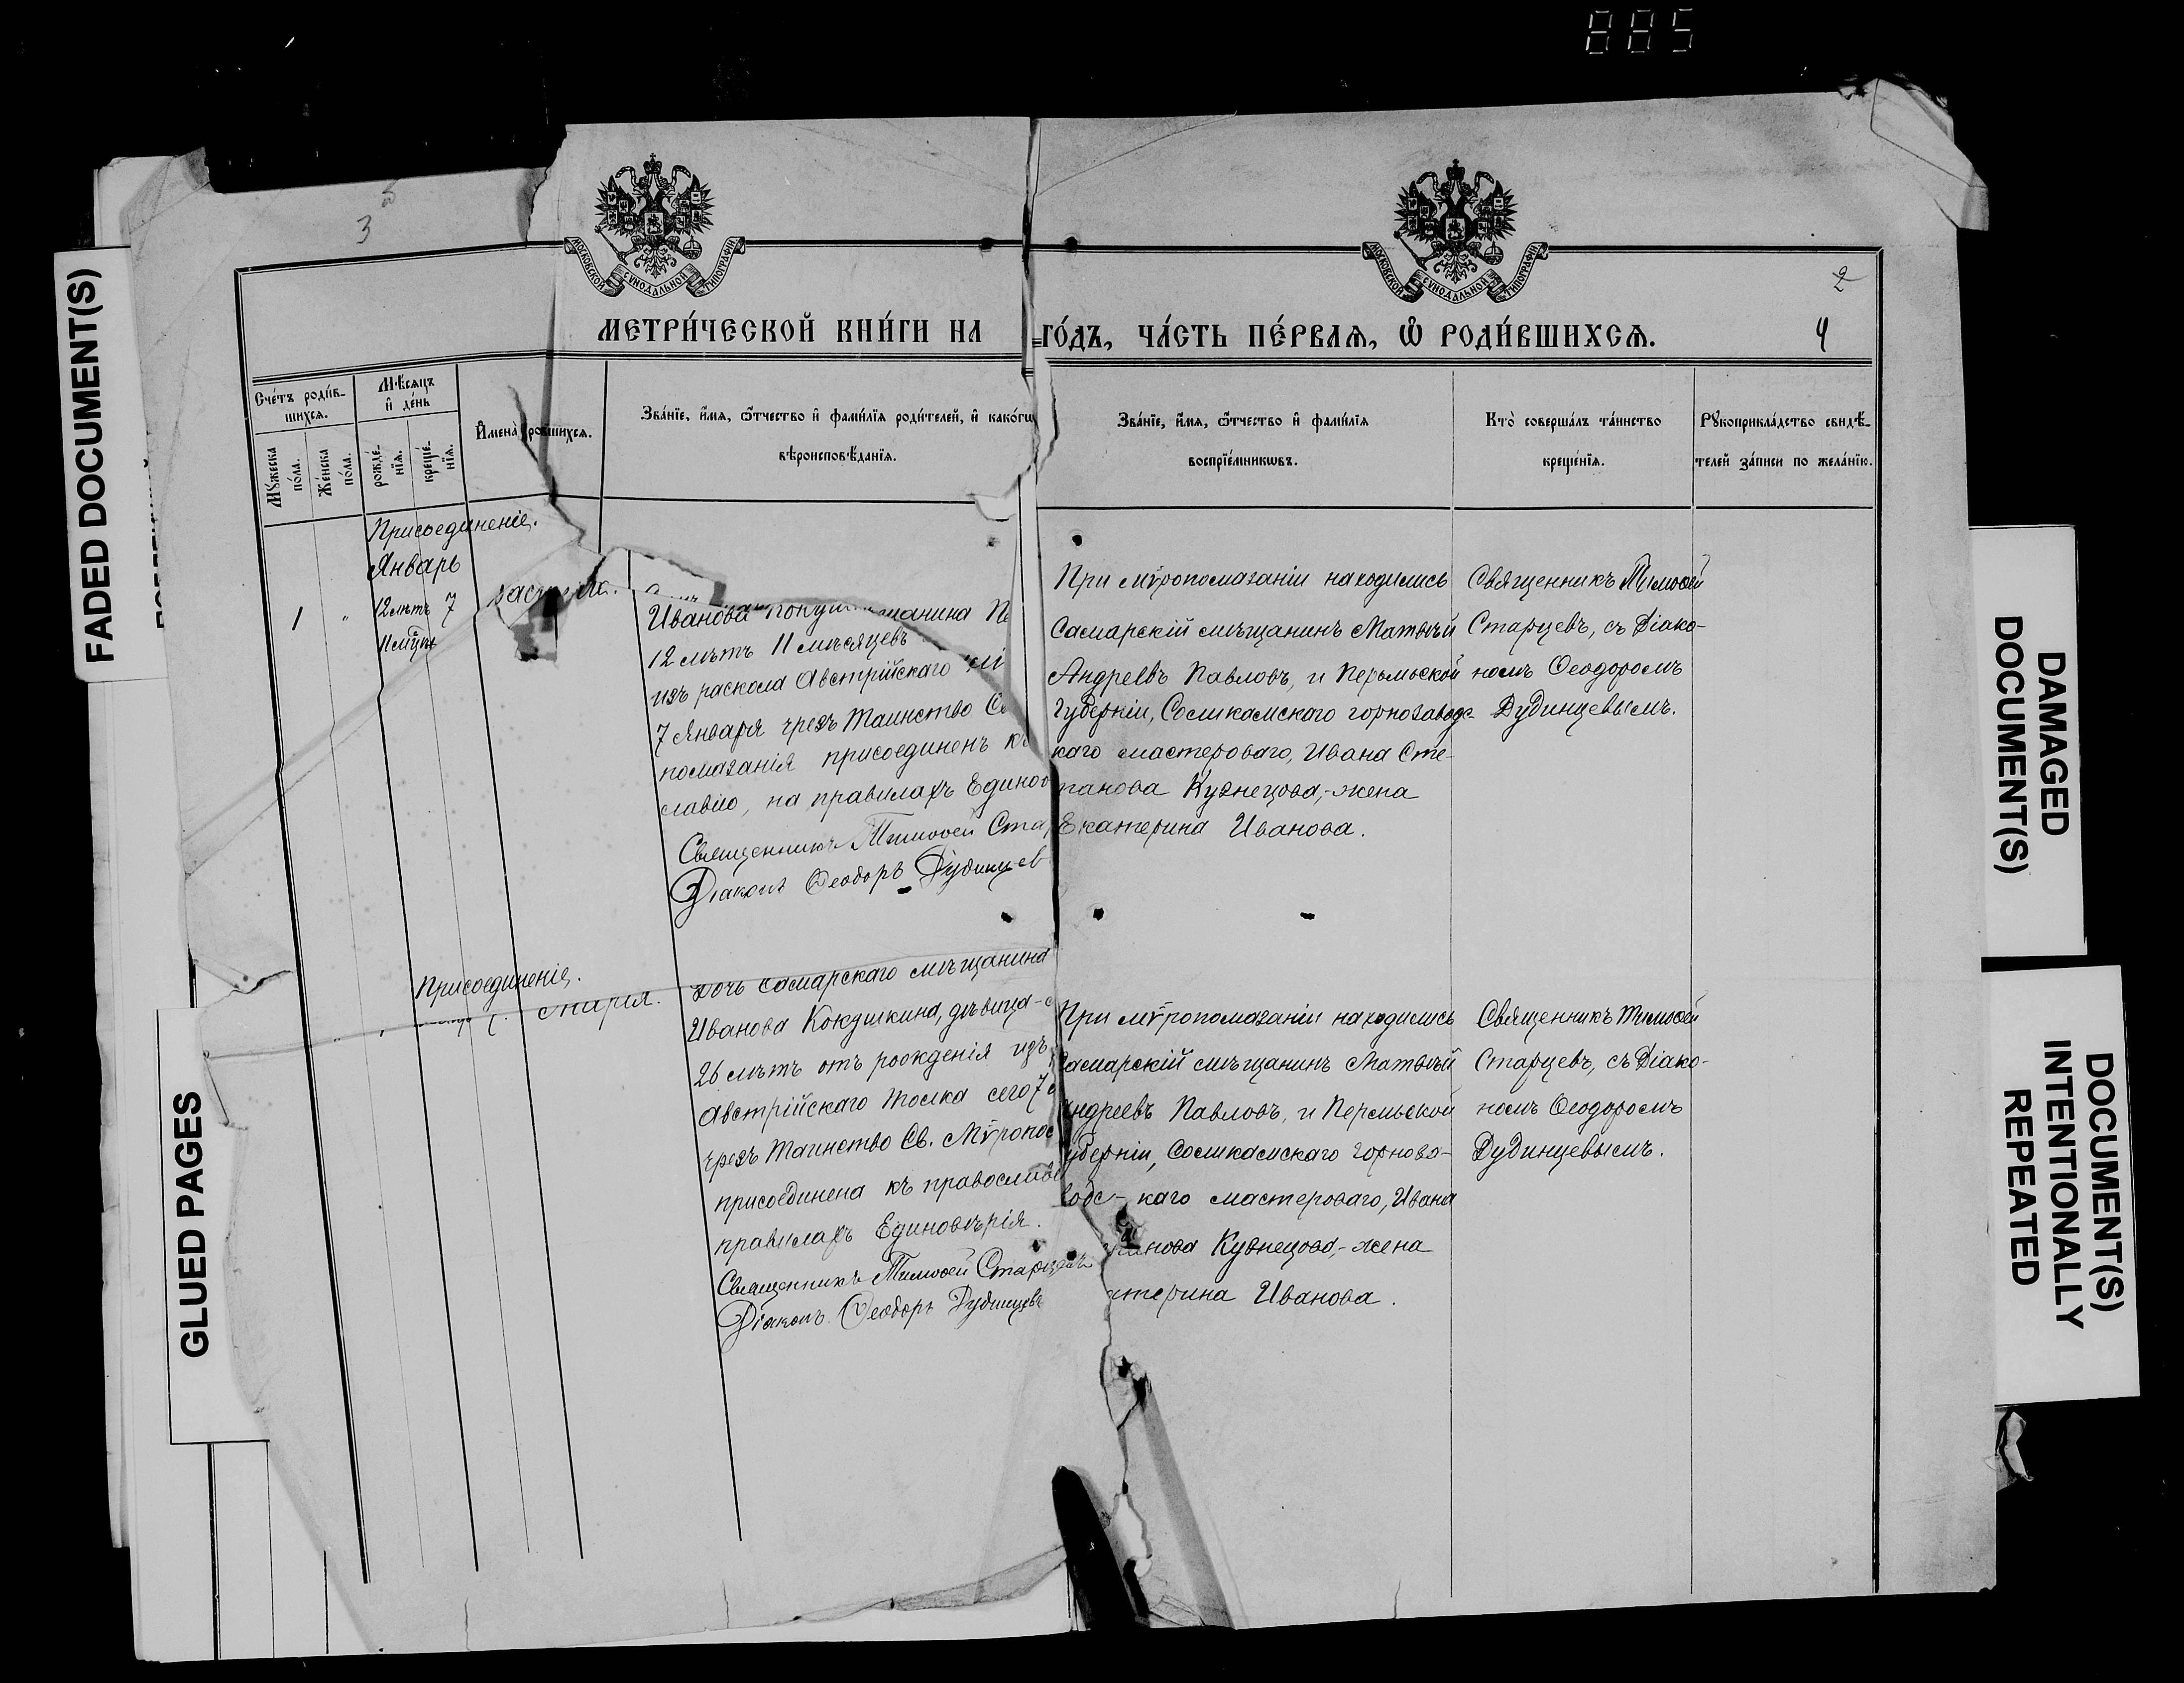 885
FADED DOCUMENT(S)
GLUED PAGES
DAMAGED
DOCUMENT(S)
DOCUMENT(S)
INTENTIONALLY
REPEATED
3
2
4
МОСКОВСКОЙ СѴНОДАЛЬНОЙ ТИПОГРАФІИ
МОСКОВСКОЙ СѴНОДАЛЬНОЙ ТИПОГРАФІИ
МЕТРИ́ЧЕСКОЙ КНИ́ГИ НА
ГО́ДЪ, ЧА́СТЬ ПЕ́РВАѦ, Ѽ РОДИ́ВШИХСѦ.
Сче́тъ роди́в-
шихся.
Мꙋ́жеска
по́ла.
Же́нска
по́ла.
Мѣсяцъ
и҆ де́нь
рожде́-
нїя.
креще́-
нїя.
И҆мена̀
Зва́нїе, и҆́мя, ѻ҆́тчество и҆ фами́лїя роди́телей, и҆ како́гѡ
вѣроисповѣ́данїя.
Зва́нїе, и҆́мя, ѻ҆́тчество и҆ фами́лїя
воспрїе́мникѡвъ.
Кто̀ соверша́лъ та́инство
креще́нїя.
Рꙋкоприкла́дство свидѣ́-
телей за́писи по жела́нїю.
Присоединеніе.
Январь
1 " 12 лѣтъ 7
Иванова
12 лѣтъ 11 мѣсяцевъ
изъ раскола Австрійскаго
7 Января чрезъ Таинство Св
помазанія присоединенъ къ
славію, на правилахъ Единов
Священникъ Тимоѳей Ста
Діаконъ Ѳеодоръ Дудинцев
При мѵропомазаніи находились
Самарскій мѣщанинъ Матвѣй
Андреевъ Павловъ, и Перьмской
Губерніи, Соликамского горнозаводс-
каго мастероваго, Ивана Сте-
панова Кузнецова,-жена
Екатерина Иванова.
Священникъ Тимоѳей
Старцевъ, съ Діако-
номъ Ѳеодоромъ
Дудинцевымъ.
Присоединеніе.
Марія.
Дочь Самарскаго мѣщанина
Иванова Кокушкина, дѣвица-
26 лѣтъ отъ рожденія изъ
Австрійскаго толка сего 7
чрезъ Таинство Св. Мѵропо
присоединена къ православі
правилахъ Единовѣрія.
Священникъ Тимоѳей Старцевъ
Діаконъ Ѳеодоръ Дудинцевъ
При мѵропомазаніи находились
Самарскій мѣщанинъ Матвѣй
Андреевъ Павловъ, и Перьмской
уберніи, Соликамскаго горноза-
водс-каго мастероваго, Ивана
панова Кузнецова,-жена
атерина Иванова.
Священникъ Тимоѳей
Старцевъ, съ Діако-
номъ Ѳеодоромъ
Дудинцевымъ.